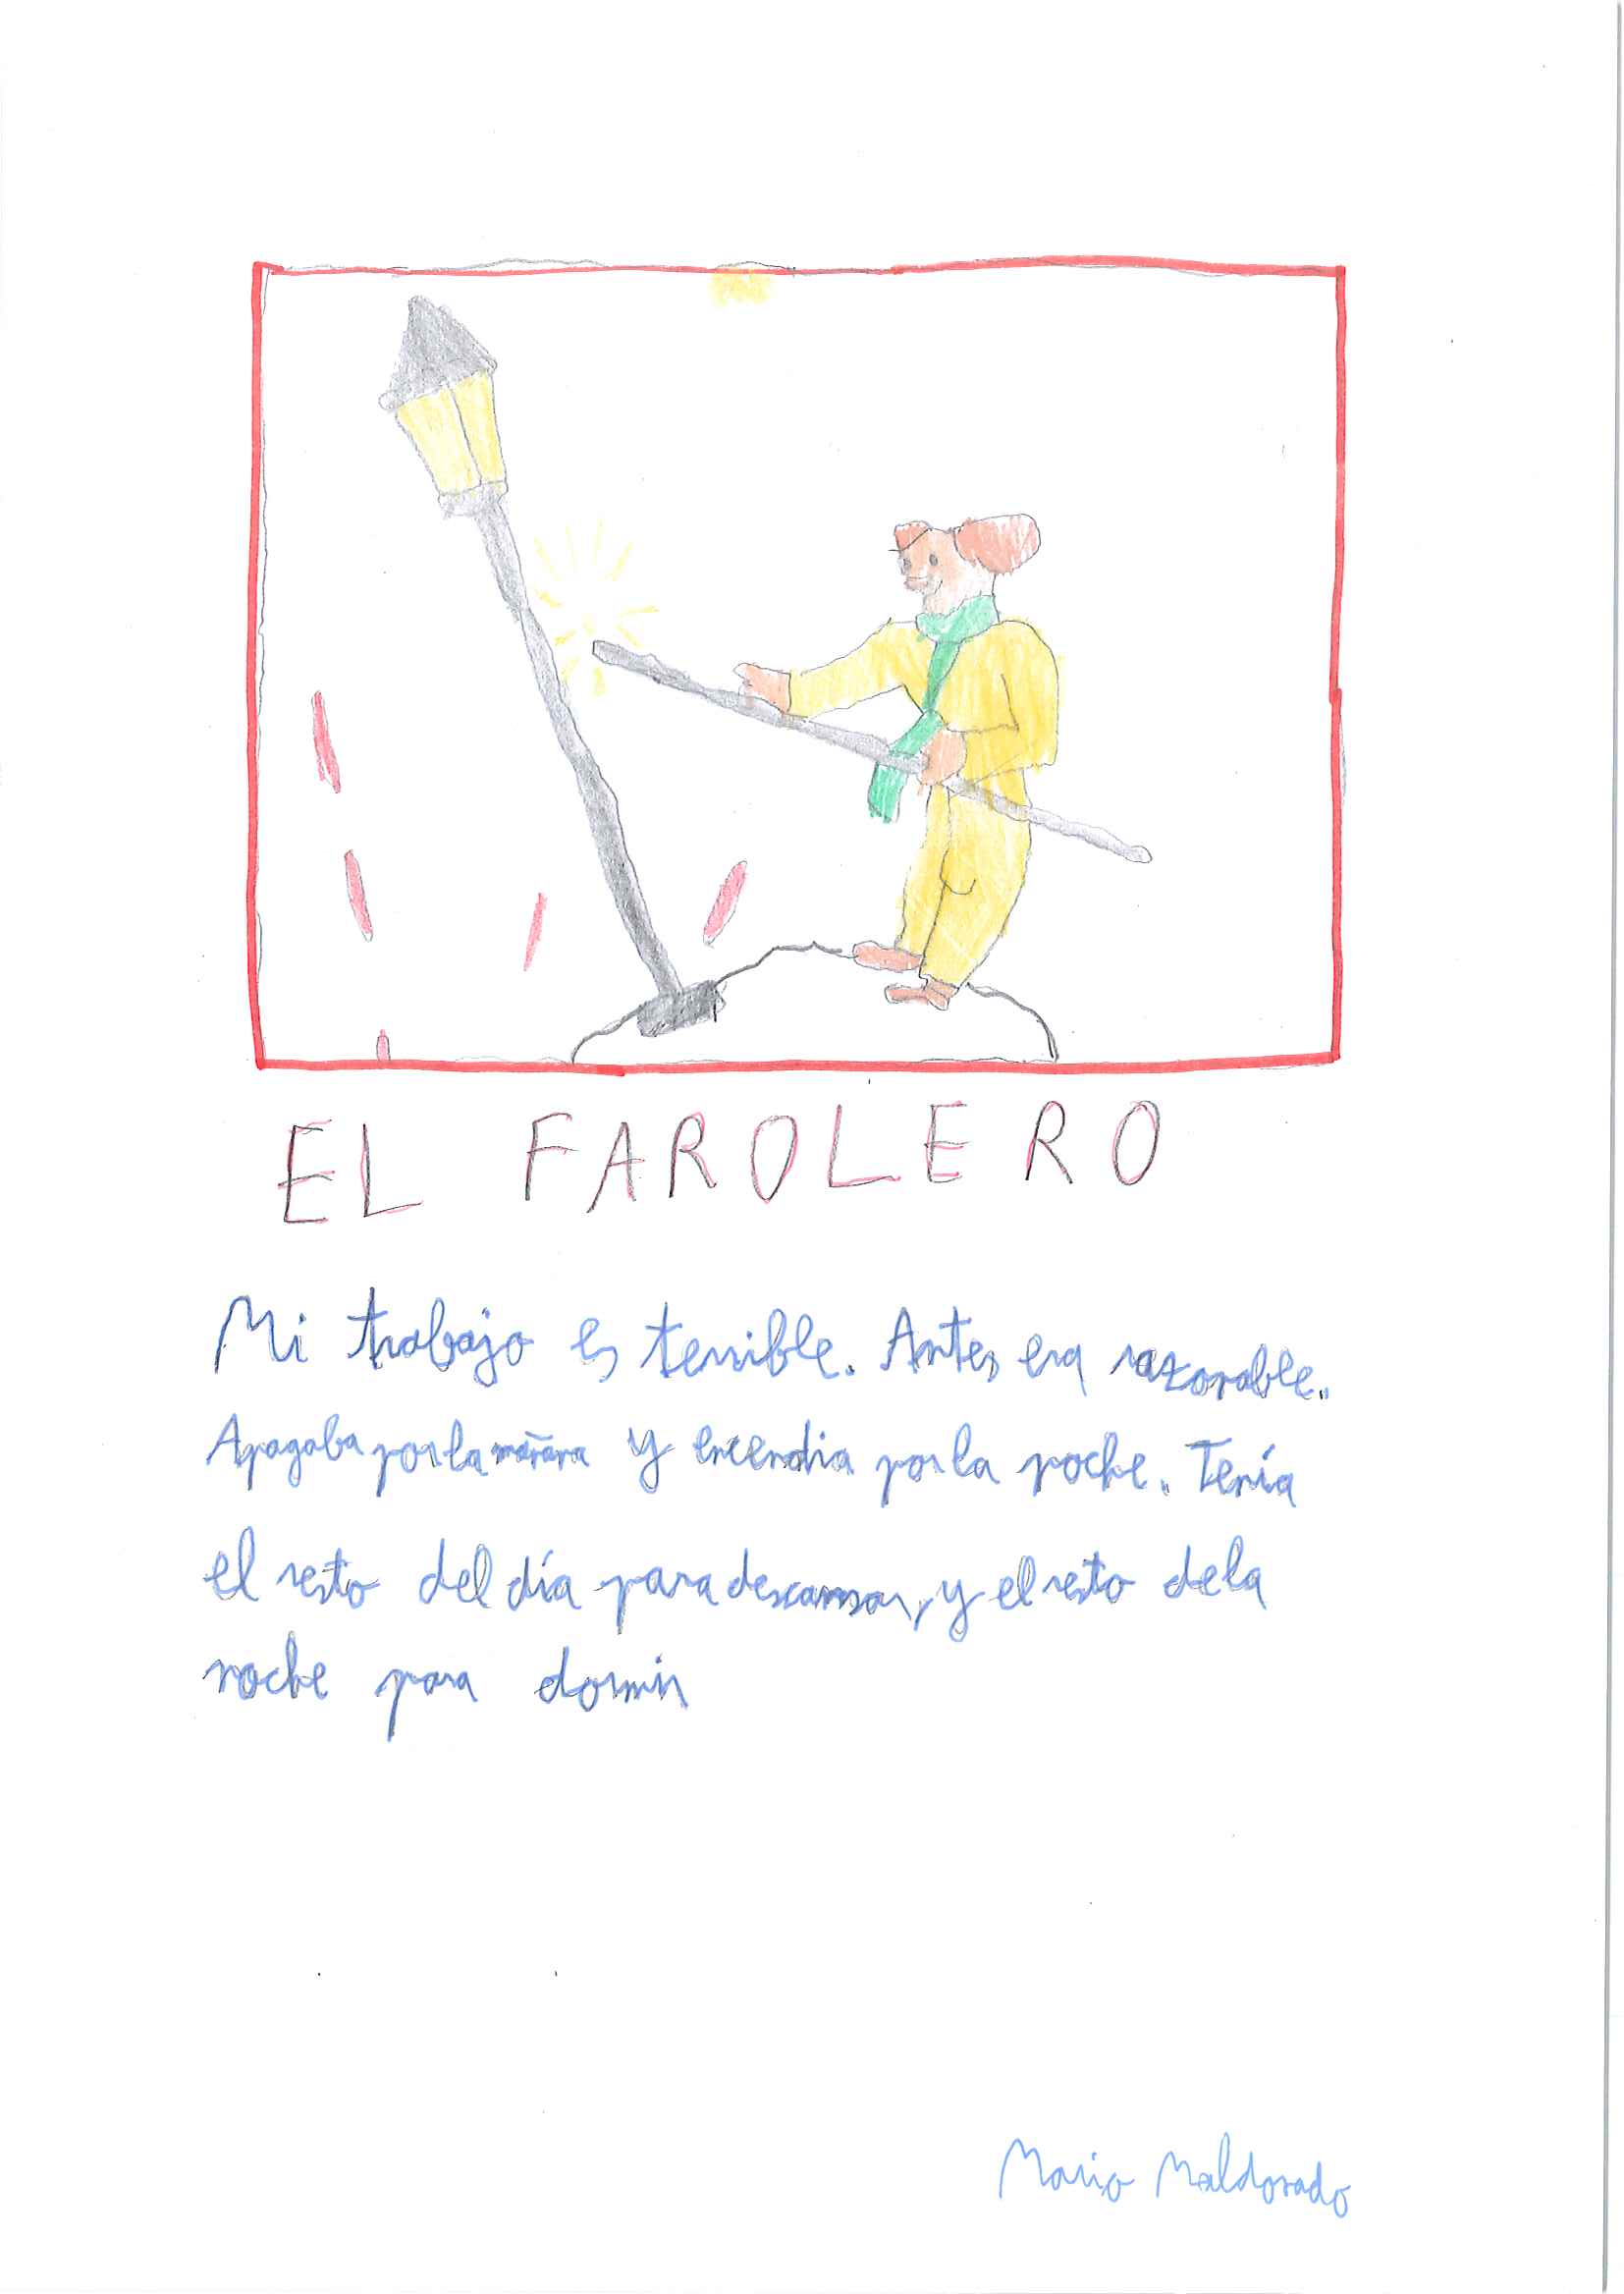 EL FAROLERO
Mi trabajo es terrible. Antes era razonable.
Apagaba por la mañana y encendia por la noche. Tenía
el resto del día para descansar, y el resto de la
noche para dormir
Mario Maldonado